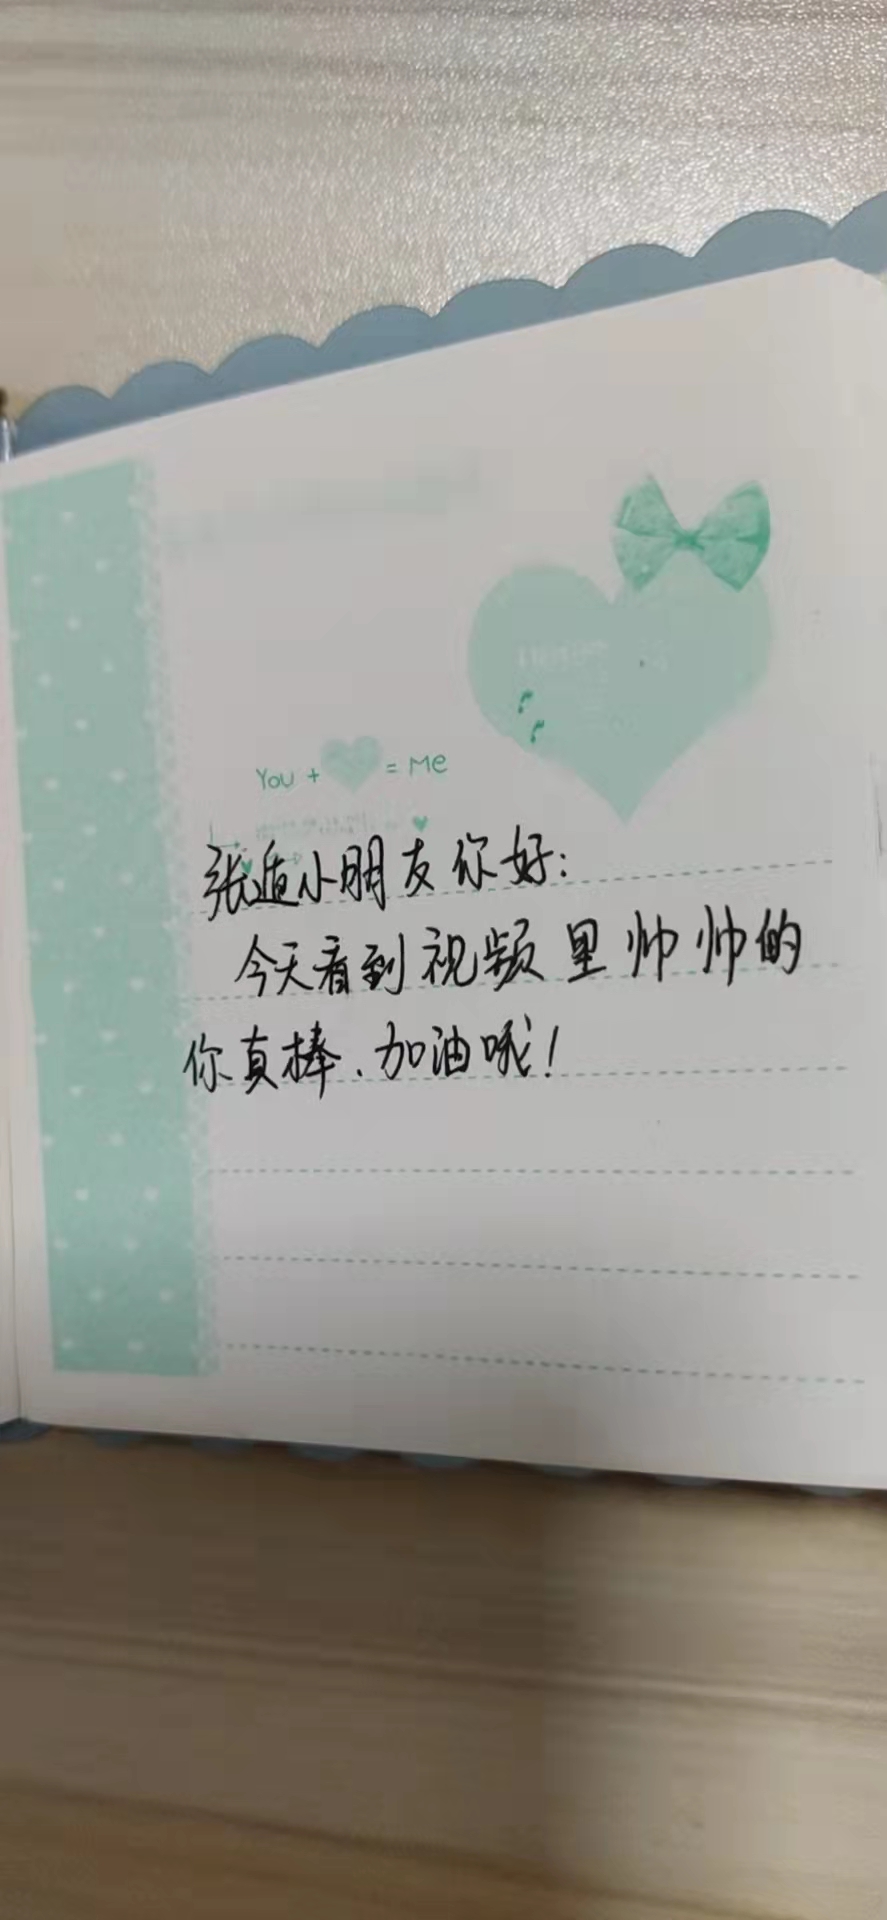 You + = Me
张遁小朋友你好:
今天看到视频里帅帅的
你真棒.加油哦!